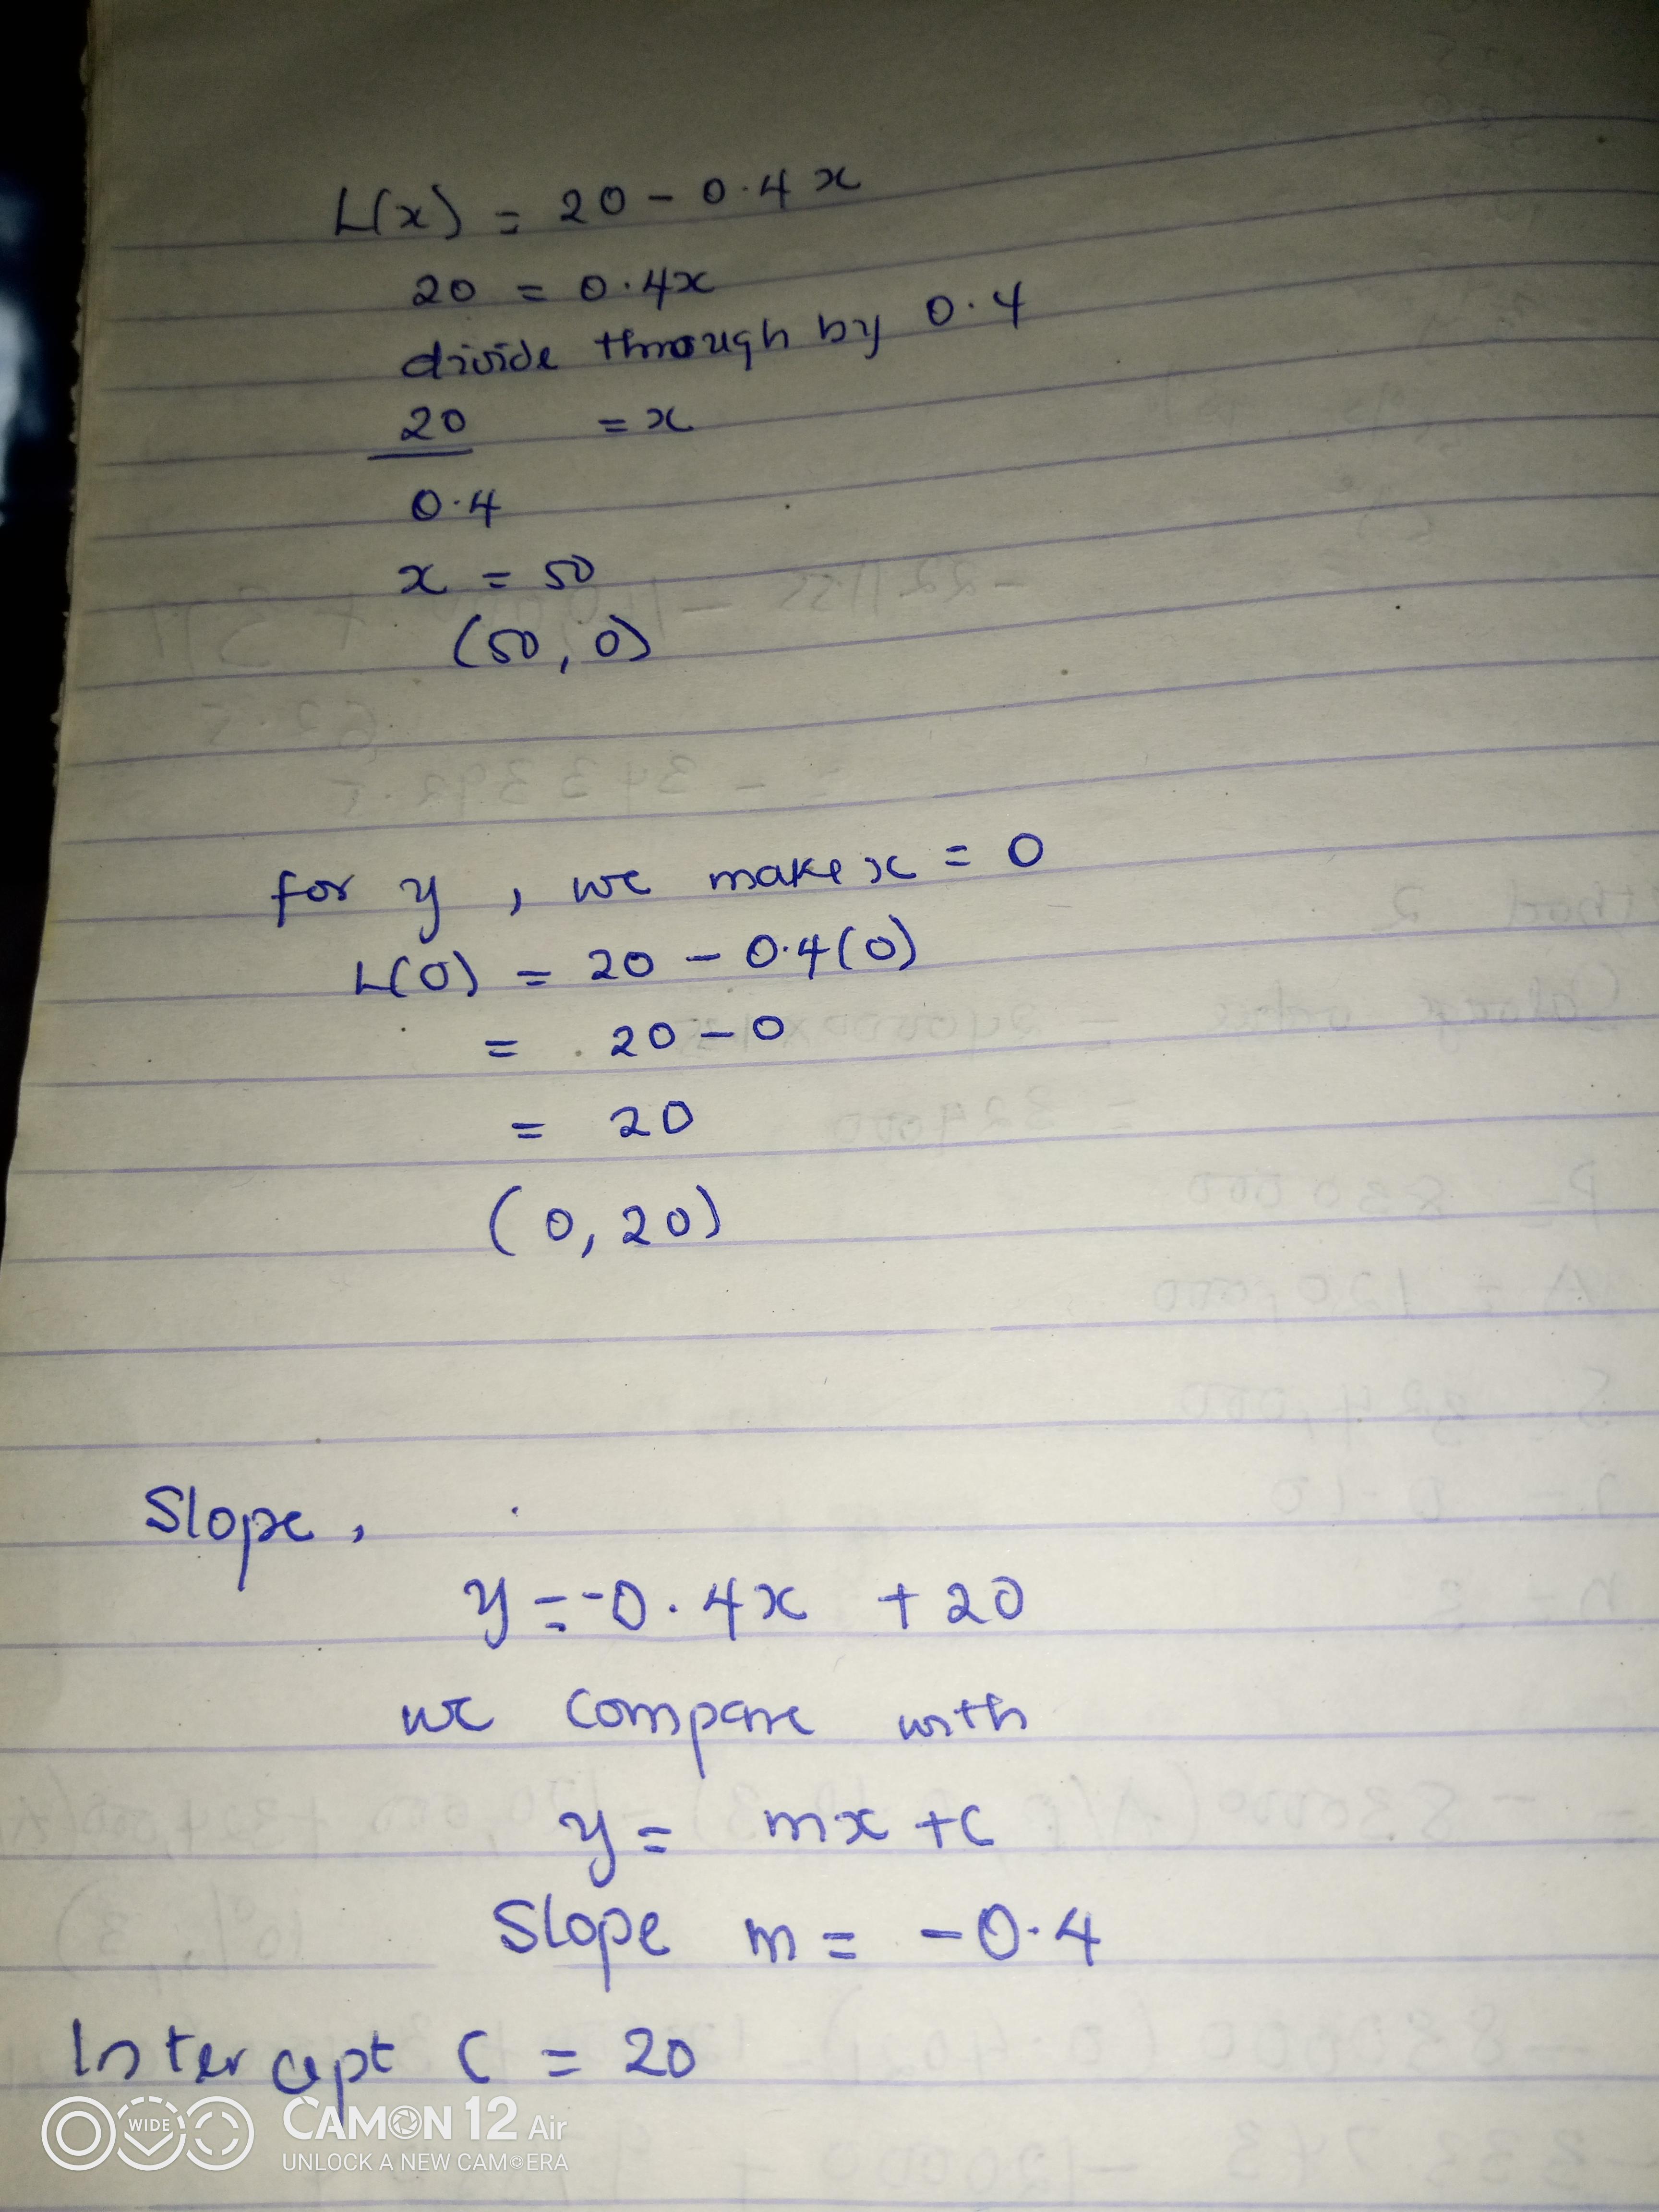 L(x) = 20 - 0.4x
20 = 0.4x
divide through by 0.4
20 = x
0.4
x = 50
(50, 0)
for y, we make x = 0
L(0) = 20 - 0.4(0)
= 20 - 0
= 20
(0, 20)
Slope,
y = -0.4x + 20
we compare with
y = mx + c
Slope m = -0.4
Intercept C = 20
WIDE
CAMON 12 Air
UNLOCK A NEW CAMERA